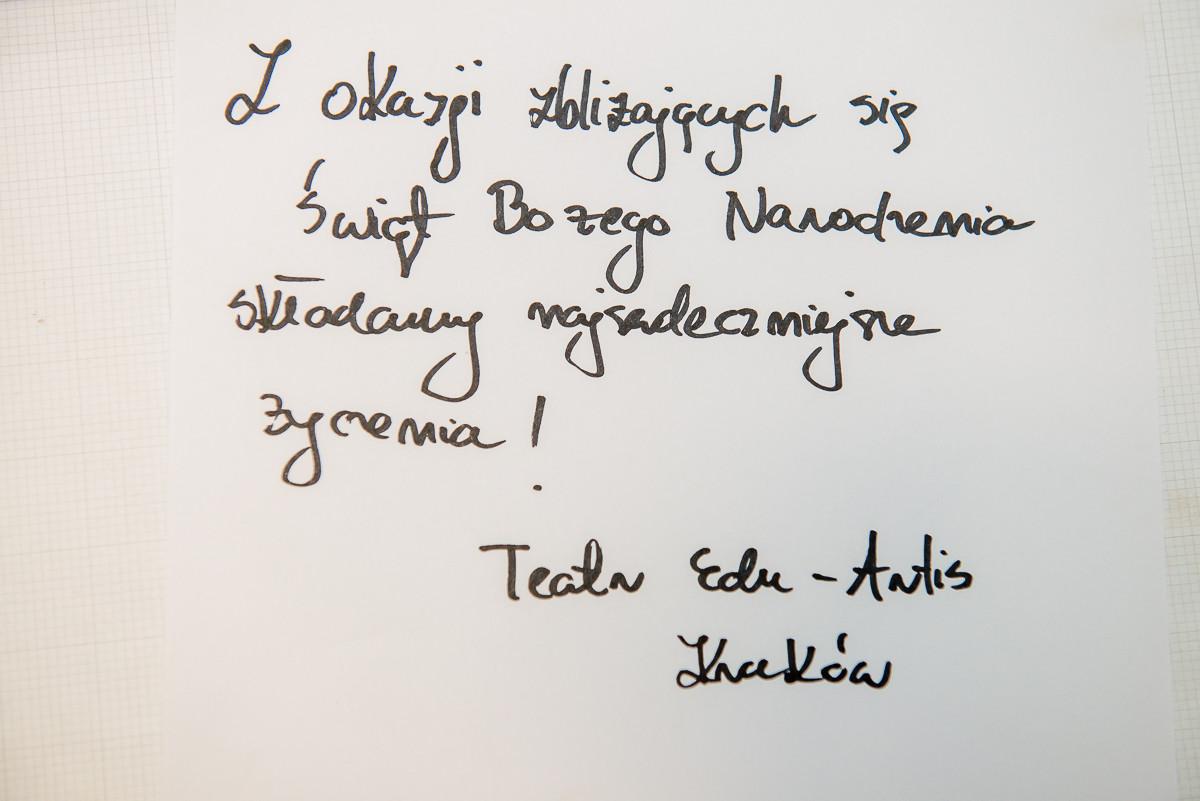 Z okazji zbliżających się
Świąt Bożego Narodzenia
składamy najserdeczniejsze
życzenia!
Teatr Edu-Artis
Kraków